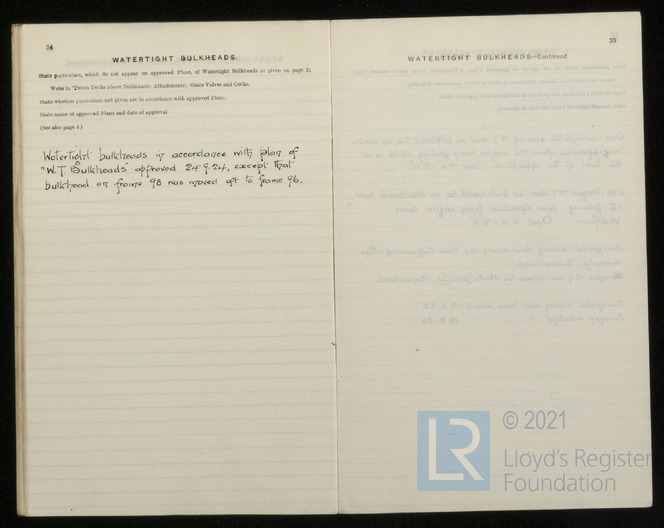 34
WATERTIGHT BULKHEADS.
State particulars, which do not appear on approved Plans, of Watertight Bulkheads as given on page 2;
Webs in 'Tween Decks above Bulkheads; Attachments; Sluice Valves and Cocks.
State whether particulars not given are in accordance with approved Plans.
State name of approved Plans and date of approval.
(See also page 4)
Watertight bulkheads in accordance with plan of
"W.T Bulkheads" approved 24.9.24, except that
bulkhead on frame 98 was moved aft to frame 96.
35
WATERTIGHT BULKHEADS—Continued.
LR
© 2021
Lloyd's Register
Foundation